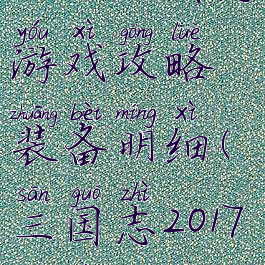 yóu xì gōng lüè
游戏攻略
zhuāng bèi míng xì
装备明细(
sān guó zhì
三国志2017